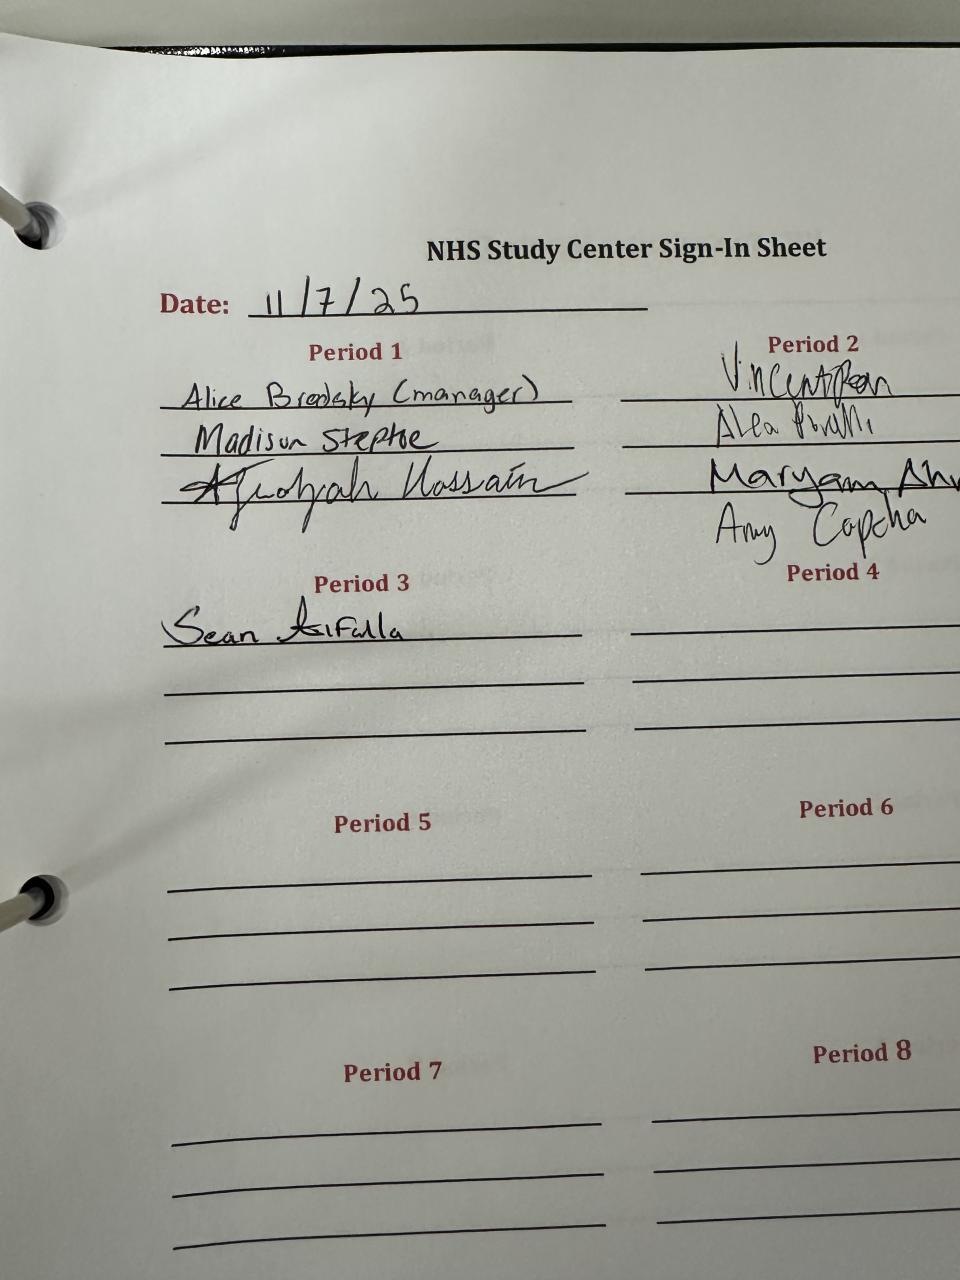 NHS Study Center Sign-In Sheet
Date: 11/7/25
Period 1
Alice Brodsky (manager)
Madison Steptoe
Hossain
Period 2
Vincent
Alea
Maryam
Amy Capcha
Period 3
Sean
Period 4
Period 5
Period 6
Period 7
Period 8